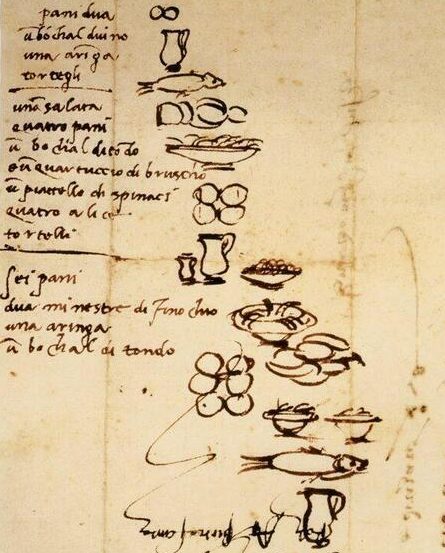 pani dua
ū bochal di vino
una aringa
tortegli
una salata
quatro pani
ū bochal di tōdo
e ū quartuccio di bruscho
ū piattello di spinaci
quatro alice
tortelli
sei pani
dua minestre di finochio
una aringa
ū bochal di tondo